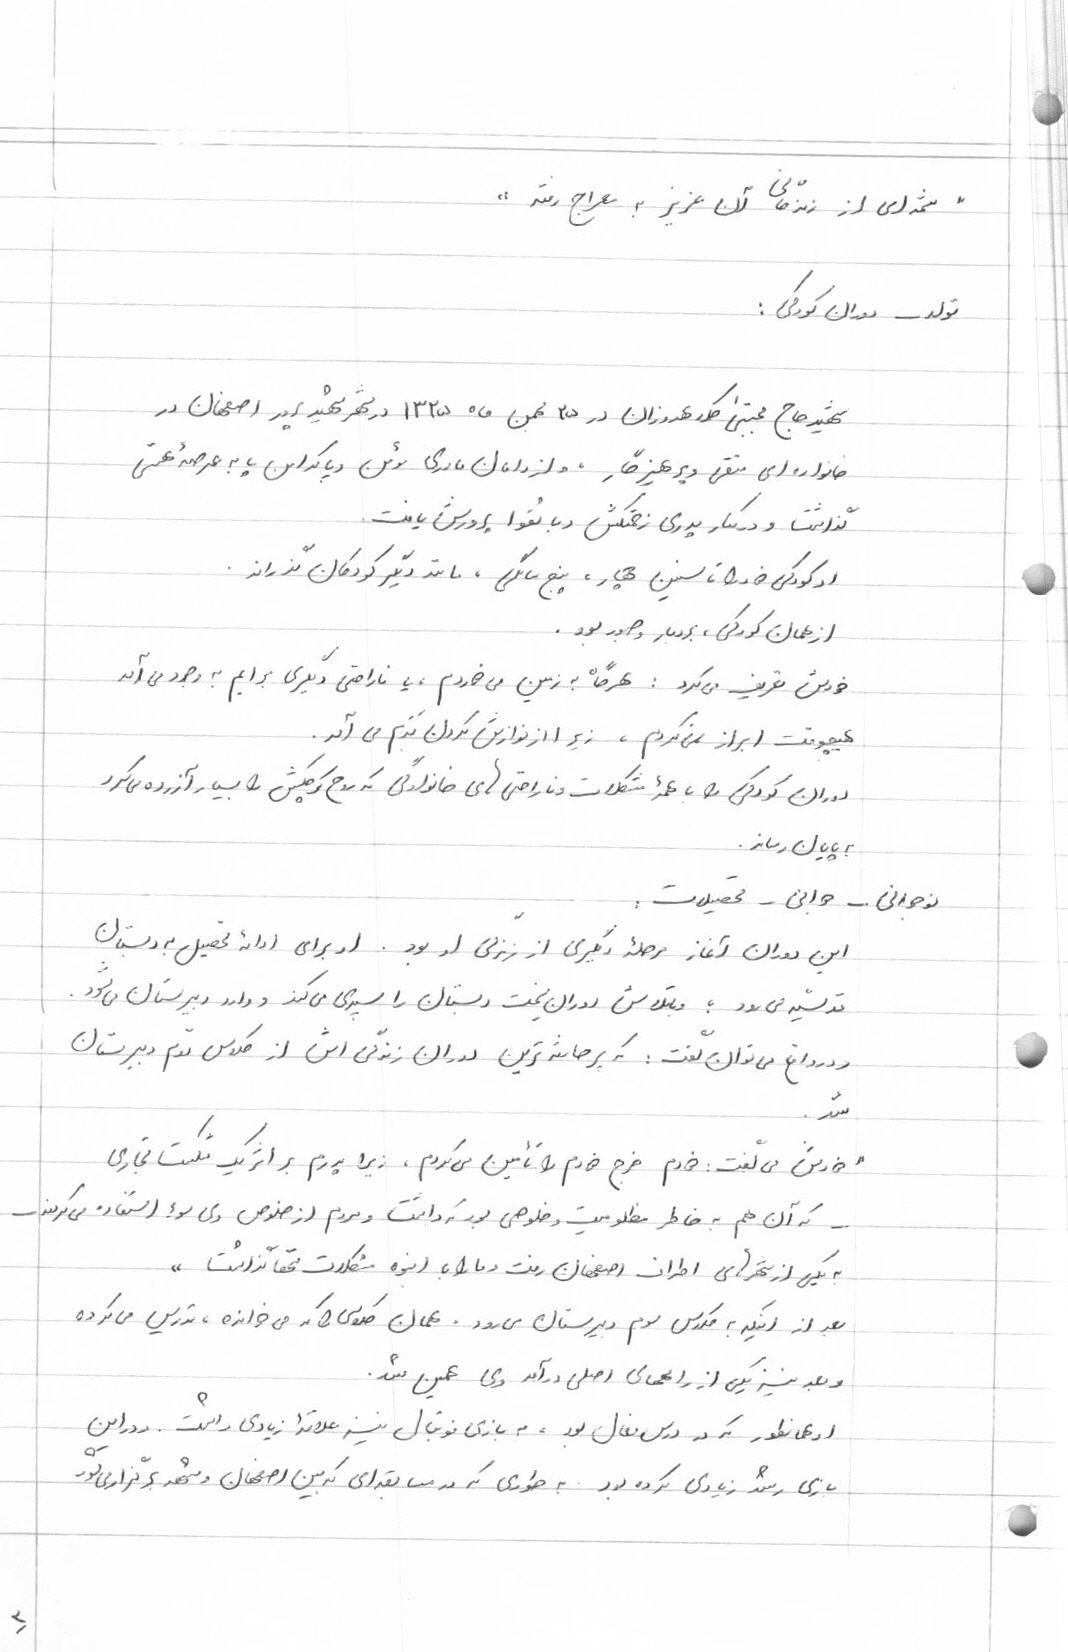 " شمه‌ای از زندگانی آن عزیز به معراج رفته "
تولد ـ دوران کودکی :
شهید حاج مجتبی کلاهدوزان در ۲۵ بهمن ماه ۱۳۲۵ در شهر شهیدپرور اصفهان در
خانواده‌ای متقی و پرهیزگار ، و از دامان مادری مؤمن و پاکدامن پا به عرصهٔ هستی
گذاشت و در کنار پدری زحمتکش و با تقوا پرورش یافت .
او کودکی خود را تا سنین چهار ، پنج سالگی ، مانند دیگر کودکان گذراند .
از همان کودکی ، بردبار و صبور بود .
خودش تعریف می‌کرد : هرگاه به زمین می‌خوردم ، یا ناراحتی دیگری برایم به وجود می‌آمد
هیچوقت ابراز نمی‌کردم ، زیرا از نوازش کردن بَدَم می‌آمد .
دوران کودکی را با همهٔ مشکلات و ناراحتی‌های خانوادگی که روح کوچکش را بسیار آزرده می‌کرد
به پایان رساند .
نوجوانی ـ جوانی ـ تحصیلات :
این دوران آغاز مرحلهٔ دیگری از زندگی او بود . او برای ادامهٔ تحصیل به دبستان
قدسیه می‌رود ؛ و با تلاش دوران سخت دبستان را سپری می‌کند و وارد دبیرستان می‌شود .
و در واقع می‌توان گفت : که پرحادثه‌ترین دوران زندگی‌اش از کلاس دوم دبیرستان
شد .
" خودش می‌گفت : خودم خرج خودم را تأمین می‌کردم ، زیرا پدرم بر اثر یک شکست تجاری
ـ که آن هم به خاطر مظلومیت و خلوصی بود که داشت و مردم از خلوص وی سوء استفاده می‌کردند ـ
به یکی از شهرهای اطراف اصفهان رفت و ما را با انبوه مشکلات تنها گذاشت "
بعد از اینکه به کلاس سوم دبیرستان می‌رود . همان کلاسی را که می‌خوانده ، تدریس می‌کرده
و بعد نیز یکی از راههای اصلی درآمد وی همین شد .
او همانطور که در درس فعال بود ، به بازی فوتبال نیز علاقهٔ زیادی داشت . و در این
بازی رشد زیادی کرده بود . به طوری که در مسابقه‌ای که بین اصفهان و مشهد برگزار می‌شود
۳